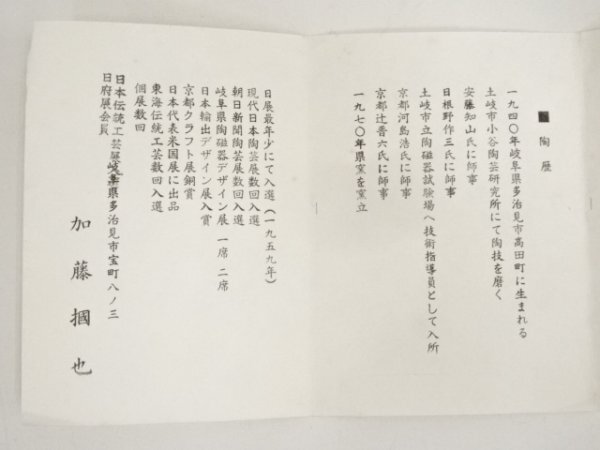 ■ 陶歴
一九四〇年岐阜県多治見市高田町に生まれる
土岐市小谷陶芸研究所にて陶技を磨く
安藤知山氏に師事
日根野作三氏に師事
土岐市立陶磁器試験場へ技術指導員として入所
京都河島浩氏に師事
京都辻晋六氏に師事
一九七〇年県窯を窯立
日展最年少にて入選(一九五九年)
現代日本陶芸展数回入選
朝日新聞陶芸展数回入選
岐阜県陶磁器デザイン展 一席 二席
日本輸出デザイン展入賞
京都クラフト展銅賞
日本代表米国展に出品
東海伝統工芸数回入選
個展数回
日本伝統工芸展
岐阜県多治見市宝町八ノ三
日府展会員
加藤摑也